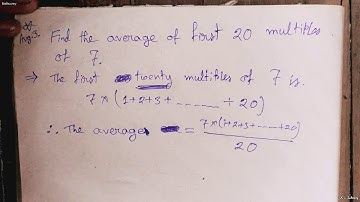 Find the average of first 20 multiples
of 7.
⇒ The first twenty multiples of 7 is.
7×(1+2+3+ ------ + 20)
∴ The average = 7×(1+2+3+-----+20)
20